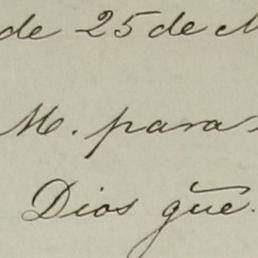 de 25 de M
M. para
Dios gũe.